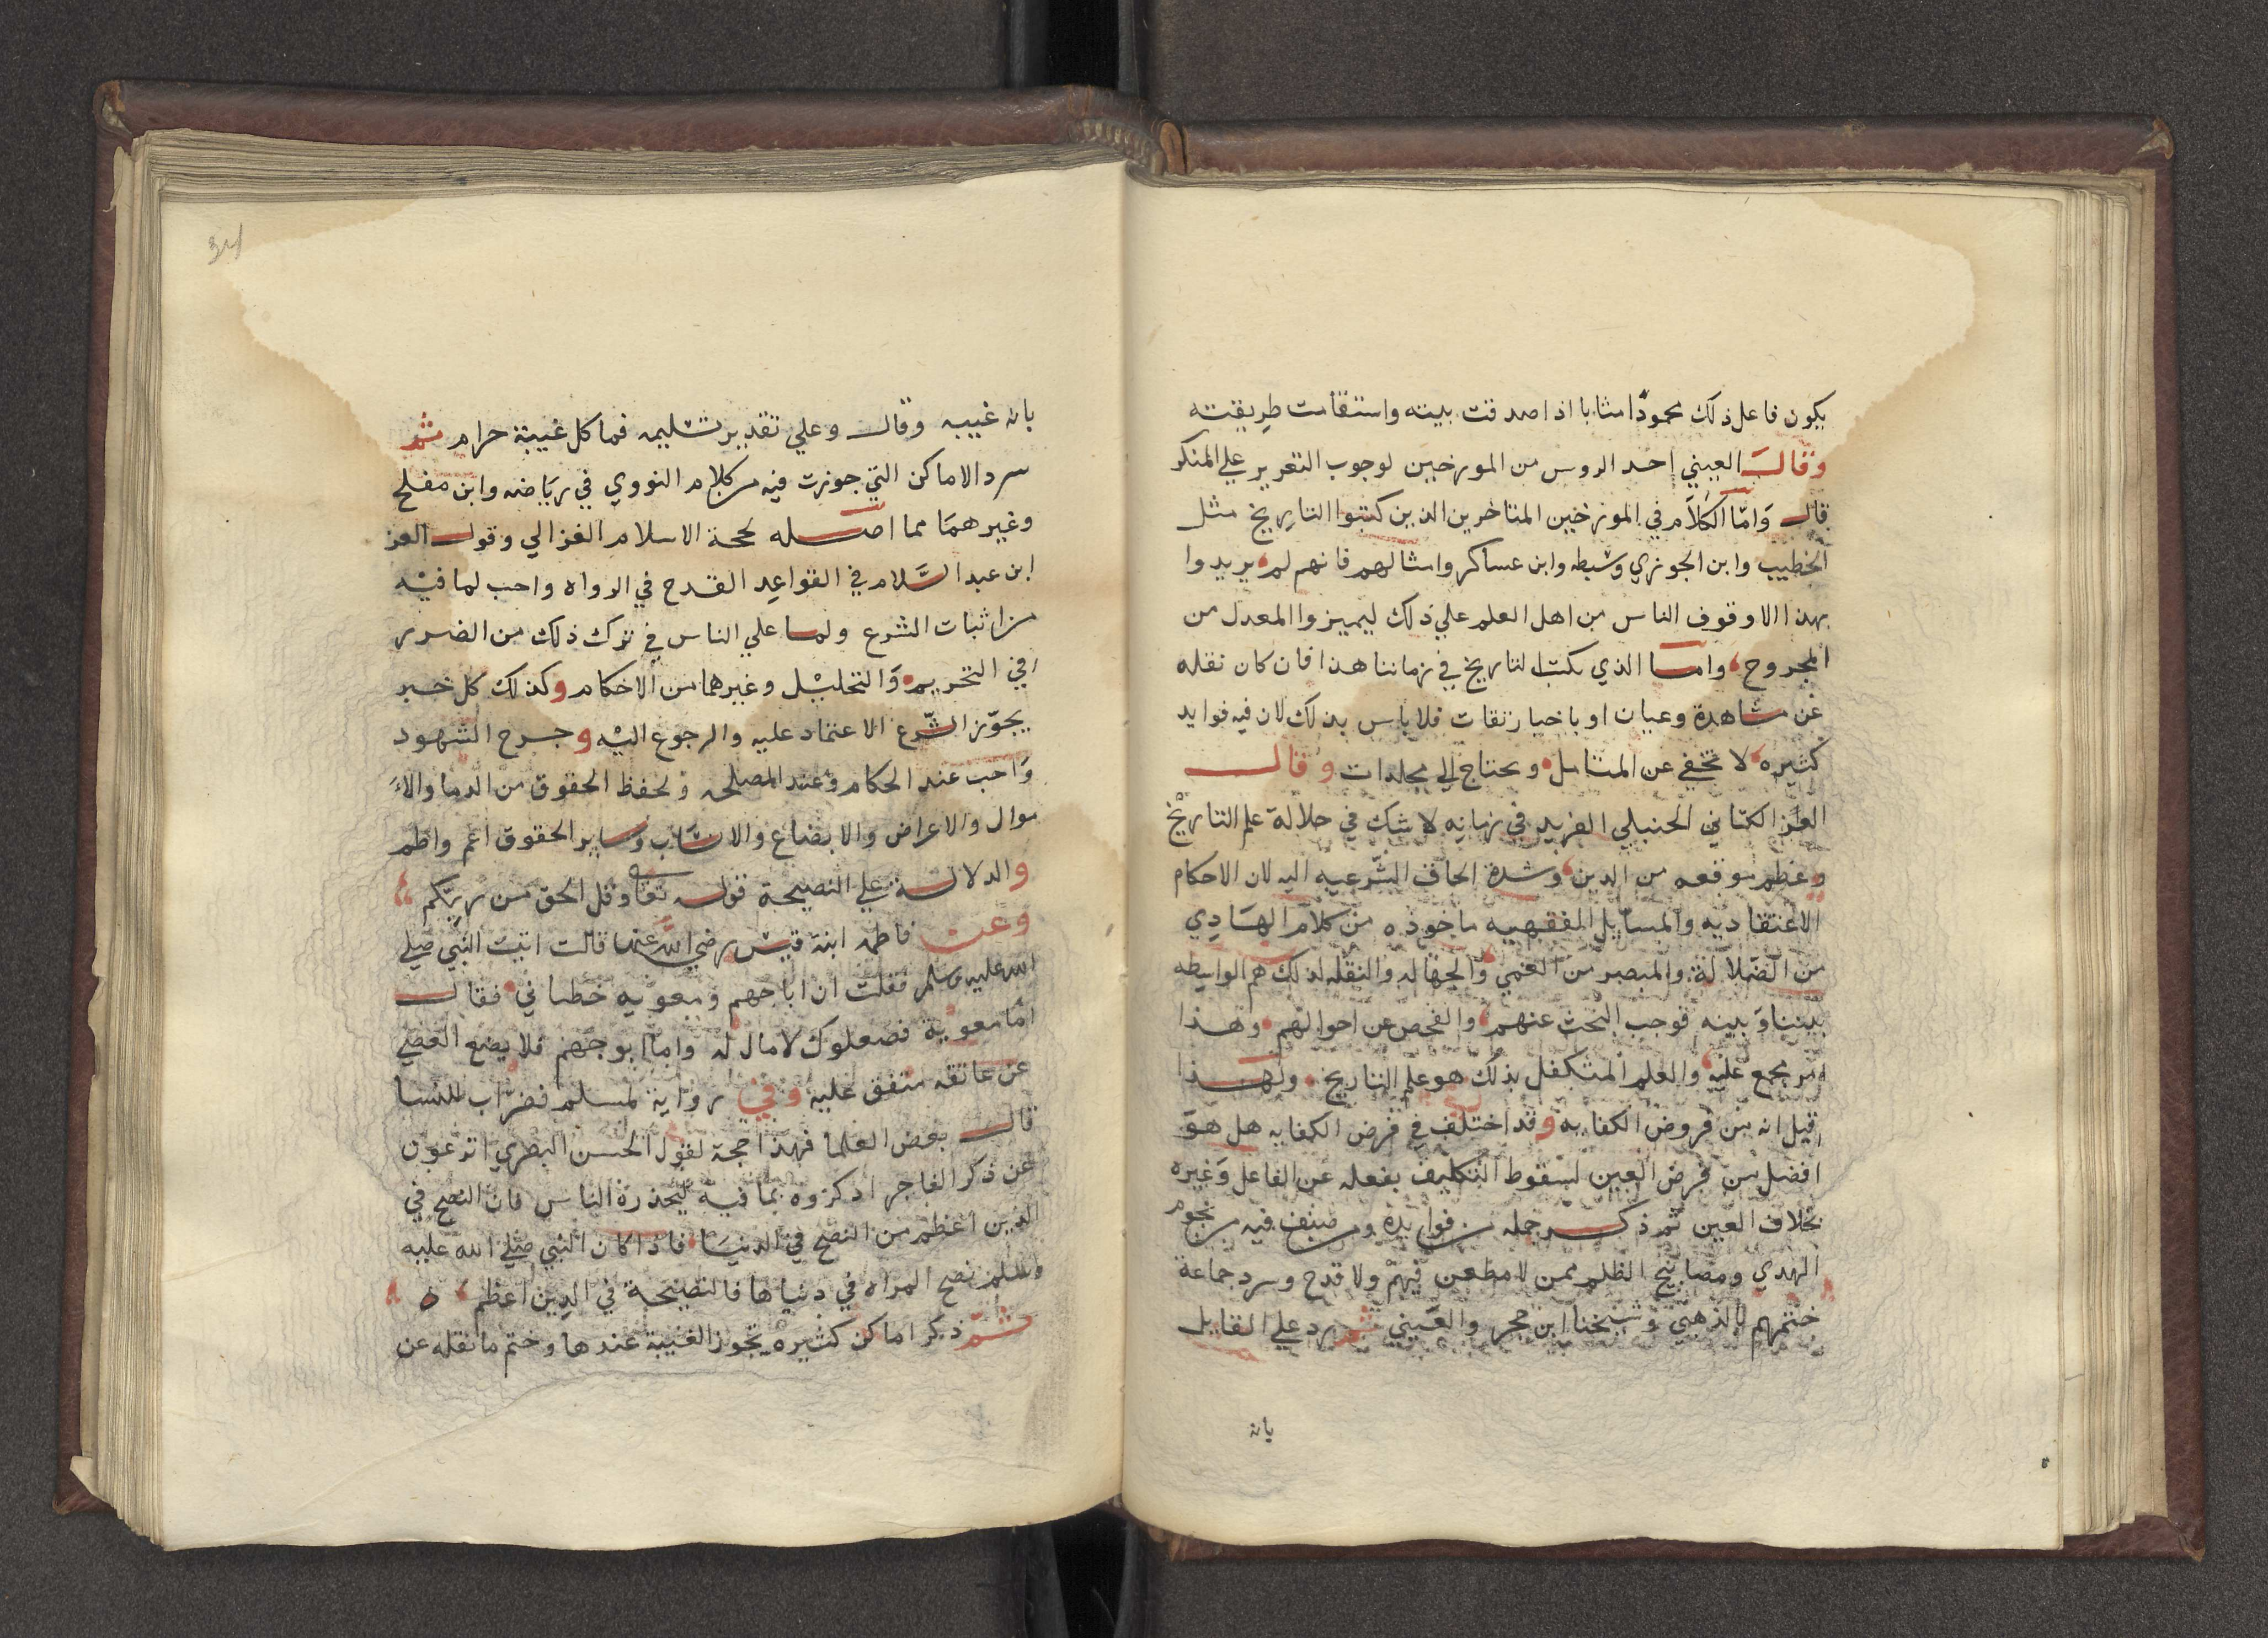 يكون فاعل ذلك محمودا مثابا اذا صدقت بينته واستقامت طريقته
وقال العيني احد الروس من المورخين لوجوب التعزير علي المنكر
قال وَامّا الكلاَم في المورخين المتاخرين الذين كتبوا التاريخ مثل
الخطيب وابن الجوزي وسبطه وابن عساكر وامثالهم فانهم لم يريدوا
بهذا الا وقوف الناس من اهل العلم علي ذلك ليميزوا المعدل من
المجروح وامـا الذي يكتب التاريخ في زماننا هذا فان كان نقله
عن مشاهدة وعيان او باخبار ثقات فلا باس بذلك لان فيه فوايد
كثيره لا تخفي عن المتامل ويحتاج الي مجلدات وقال
العز الكناني الحنبلي الفريد في زمانه لا شك في جلالة علم التاريخ
وعظم موقعه من الدين وشدة الحاف الشرعيه اليه لان الاحكام
الاعتقاديه والمسايل الفقهيه ماخوذه من كلام الهَادِي
من الضلالة والمبصر من العمي والجهاله والنقله لذلك هم الواسطه
بيننا وَبينه فوجب البحث عنهم والفحص عن احوالهم وهذا
امر مجمع عليه والعلم المتكفل بذلك هو علم التاريخ ولهـذا
قيل انه من فروض الكفايه وقد اختلف في فرض الكفايه هل هو
افضل من فرض العين لسقوط التكليف بفعله عن الفاعل وَغيره
بخلاف العين ثم ذكـر جمله من فوايده ومن صنف فيه من نجوم
الهدي ومصابيح الظلم ممن لا مطعن فيهم ولا قدح وسرد جماعة
ختمهم بالذهبي وشيخنا ابن حجر والعيني ثم رد علي القايل
بانه
بانه غيبه وقال وعلي تقدير تسليمه فما كل غيبة حرام ثم
سرد الاماكن التي جوزت فيه من كلام النووي في رياضه وابن مفلح
وغيرهمَا مما اصـله لحجة الاسلام الغزالي وقول العز
ابن عبد السَّلام في القواعِد القدح في الرواه واجب لما فيْه
من اثبات الشرع ولمـا علي الناس في ترك ذلك من الضرر
في التحريم وَالتحليْل وغيرهما من الاحكام وكذلك كل خبر
يجوّز الشّرع الاعتماد عليه والرجوع اليْه وجرح الشهود
وَاجب عند الحكام وَعند المصلحه ولحفظ الحقوق من الدما والا
موال والاعراض والابضاع والانسَاب وسَاير الحقوق اعم واطم
والدلالـة علي النصيحة قوله تعا وقل الحق من ربّكم
وعن فاطمه ابنة قيس رضي الله عنها قالت اتيت النَّبي صلي
الله عليه وسلم فقلت ان ابا جهم ومعويه خطباني فقال
امّا معوية فصعلوك لا مال له واما ابوجهم فلا يضع العصي
عن عاتقه متفق عليه وفي رواية لمسلم فضراب للنسا
قال بعض العلما فهذا حجة لقول الحسن البصري اترعون
عن ذكر الفاجر اذكروه بما فيه ليحذره الناس فان النصح في
الدين اعظم من النصح في الدنيَا فاذا كان النبي صلي الله عليه
وسلم نصح المراه في دنياها فالنصيحة في الدين اعظم ه
ثـم ذكر اماكن كثيره تجوز الغيبة عندها وختم ما نقله عن